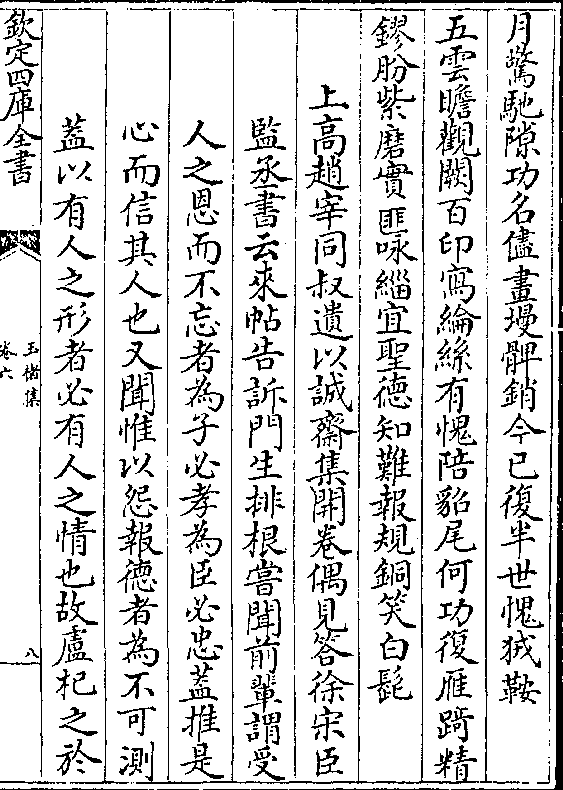 月驚馳隙功名儘畫墁髀銷今已復半世愧狨鞍
五雲瞻觀闕百印寫綸絲有愧陪貂尾何功復雁踦精
鏐肦紫磨實匪咏緇宜聖德知難報規銅笑白髭
上髙趙宰同叔遺以誠齋集開卷偶見答徐宋臣
監丞書云來帖告訴門生排根嘗聞前輩謂受
人之恩而不忘者為子必孝為臣必忠蓋推是
心而信其人也又聞惟以怨報德者為不可測
蓋以有人之形者必有人之情也故盧杞之於
欽定四庫全書
玉楮集
卷六
八